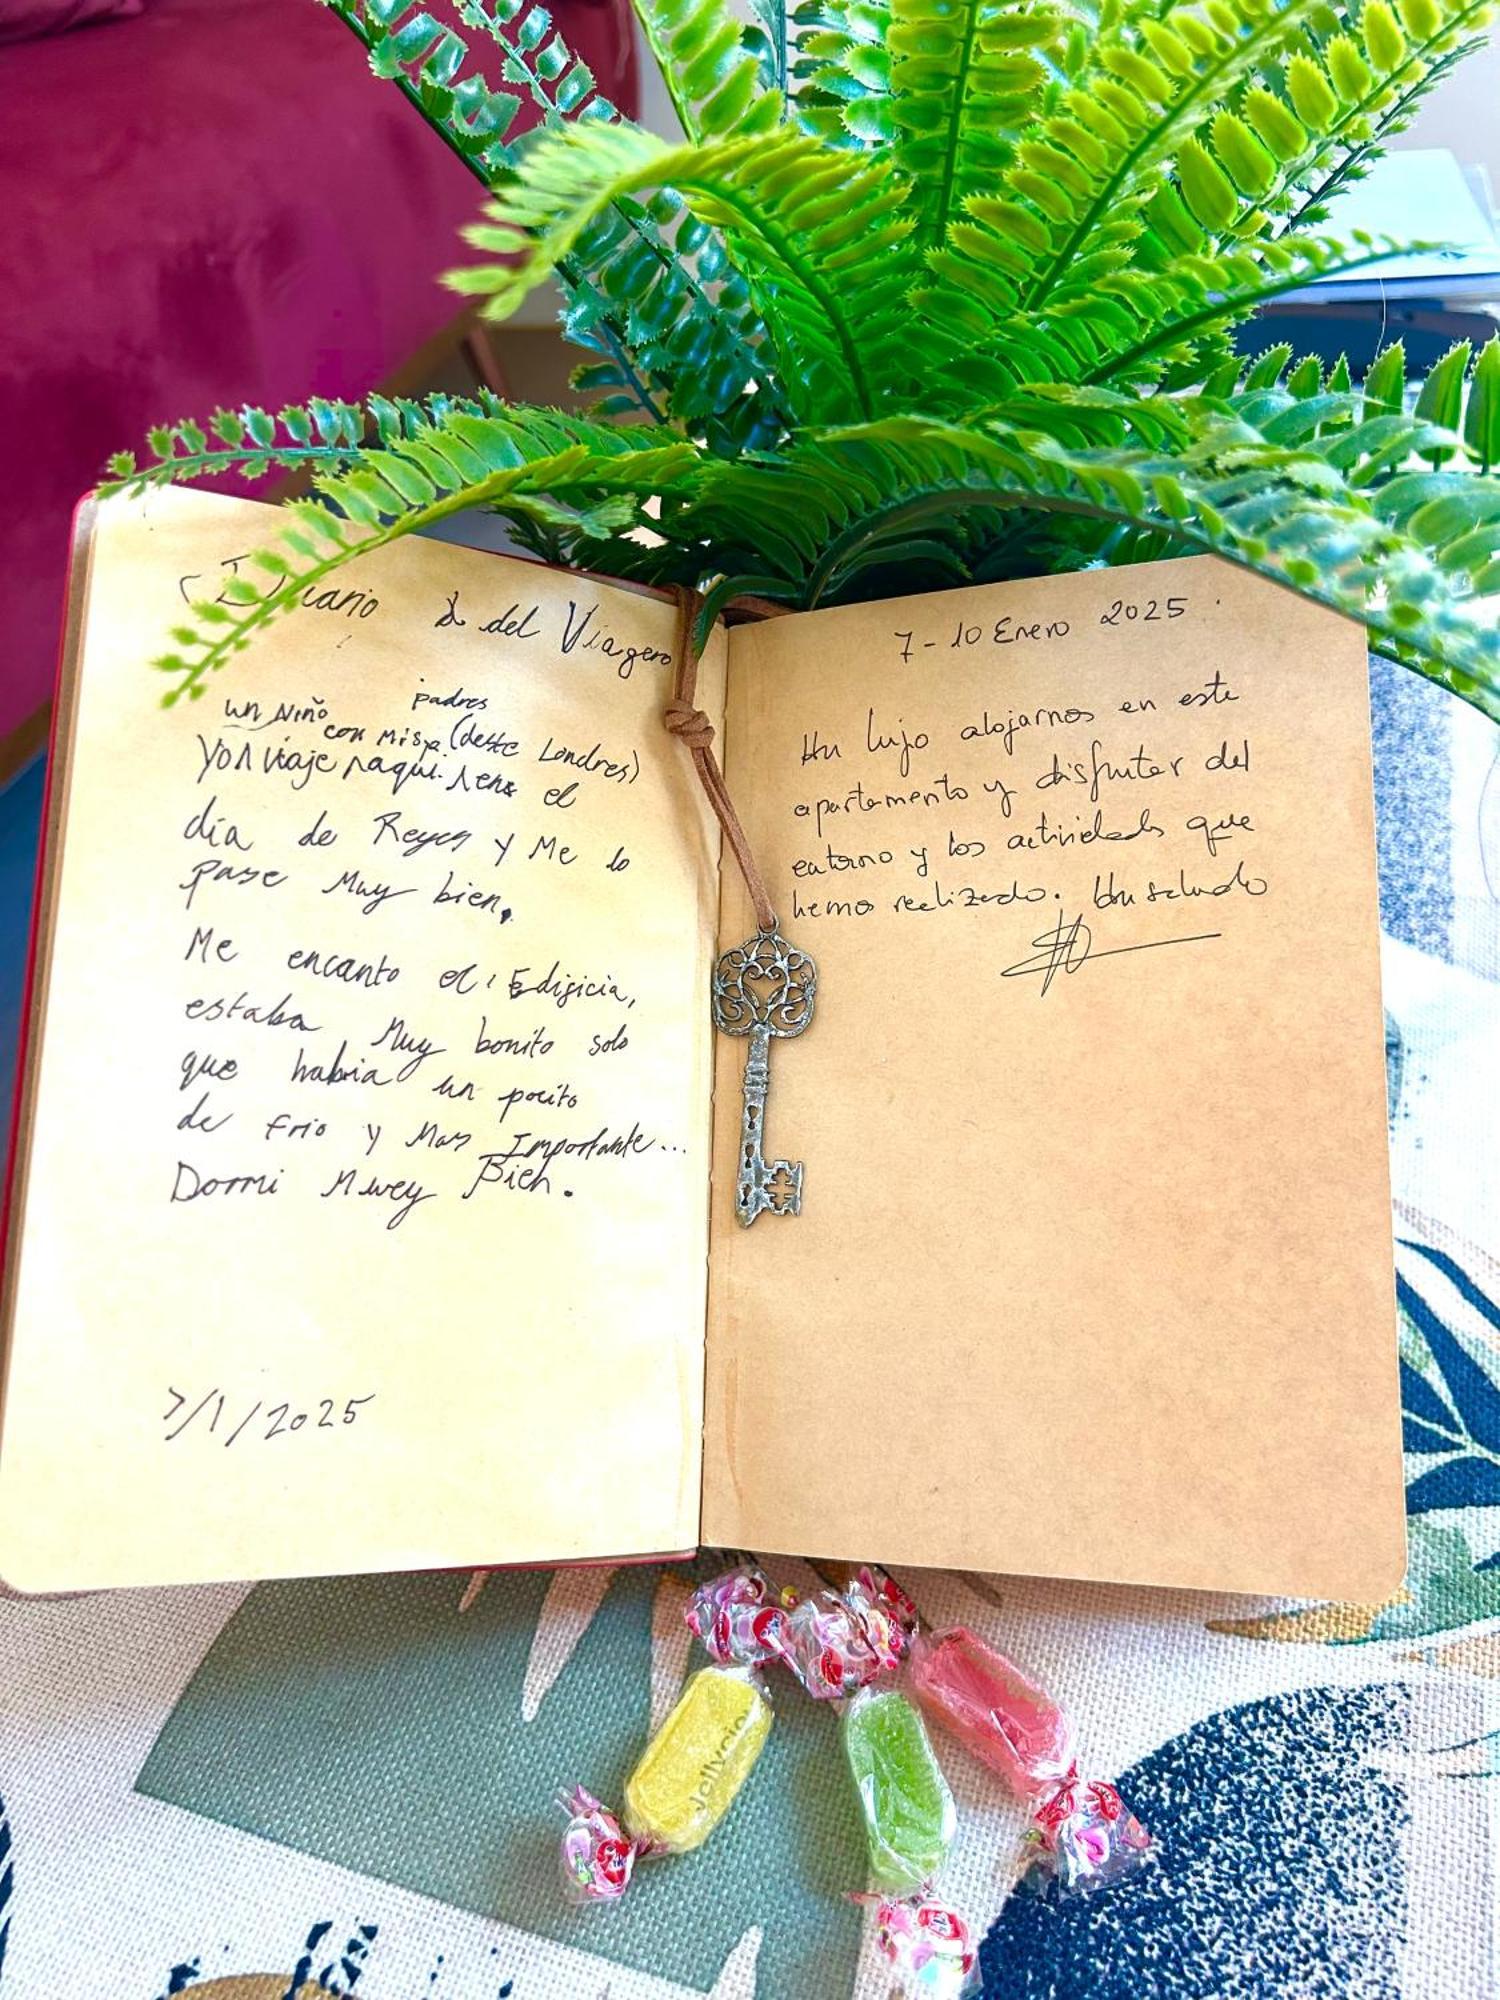 Diario del Viagero
un Niño
padres
con mis (deste Londres)
Yo viaje aqui en el
dia de Reyes y Me lo
pase Muy bien.
Me encanto el Edificia,
estaba Muy bonito solo
que habia un pocito
de Frio y Mas Importante...
Dormi Muey Bien.
7/1/2025
7-10 Enero 2025
Un lujo alojarnos en este
apartamento y disfrutar del
entorno y las actividades que
hemos realizado. Un saludo